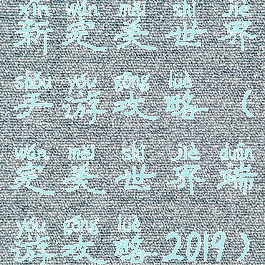 xīn wán měi shì jiè
新完美世界
shǒu yóu gōng lüè
手游攻略（
wán měi shì jiè duān
完美世界端
yóu gōng lüè
游攻略2019）